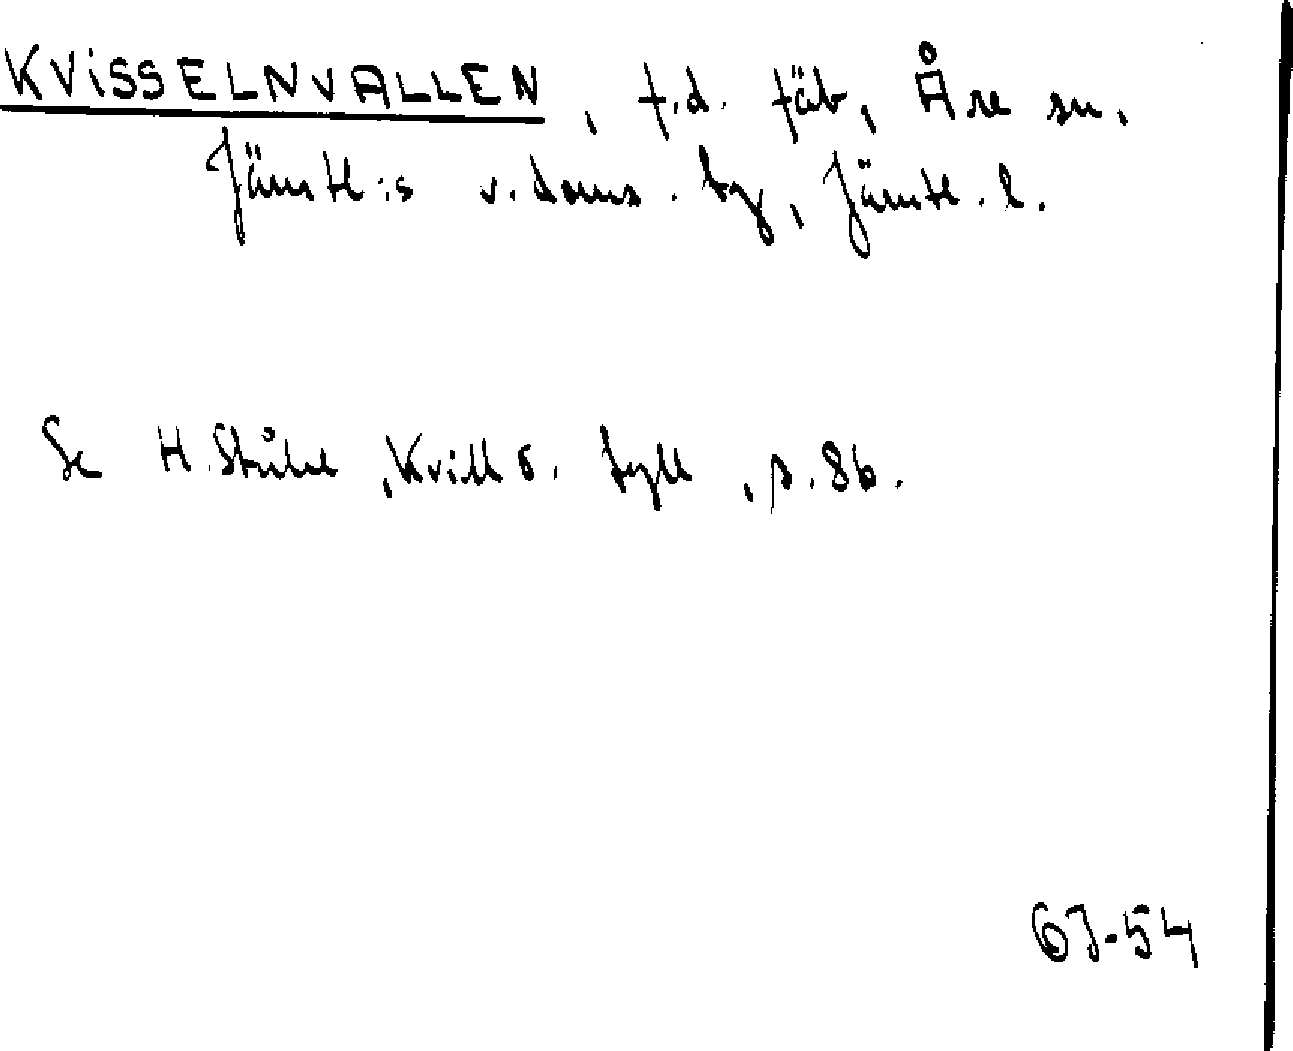 KVISSELNVALLEN, f.d. fäb, Åre sn,
Jämtl:s v. doms. tg, Jämtl. l.
Se H. Ståhl, Kvill o. tyll, s. 86.
67-54